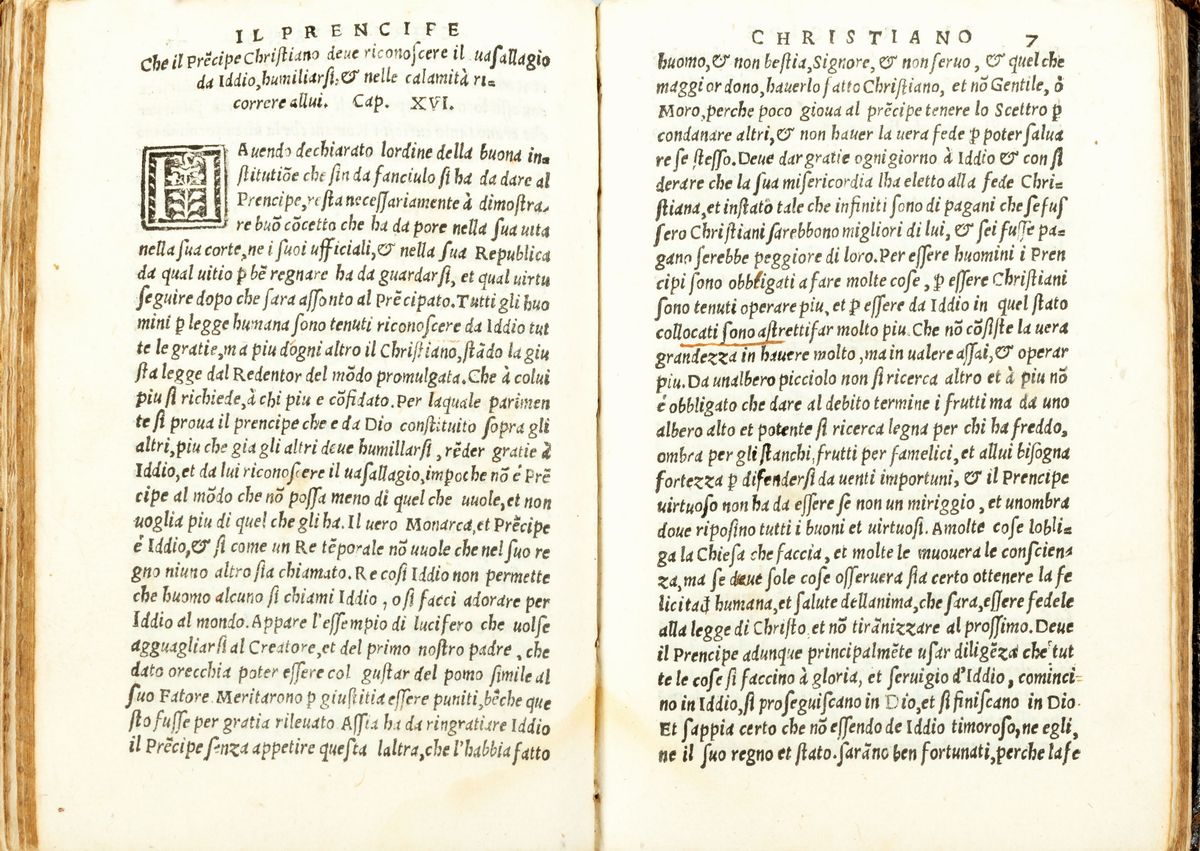 IL PRENCIFE
Che il Prēcipe Christiano deue riconoscere il uasallagio
da Iddio, humiliarsi, & nelle calamità ri-
correre allui. Cap. XVI.
HAuendo dechiarato lordine della buona in-
stitutiōe che sin da fanciulo si ha da dare al
Prencipe, resta necessariamente à dimostra-
re buō cōcetto che ha da pore nella sua uita
nella sua corte, ne i suoi ufficiali, & nella sua Republica
da qual uitio ꝑ bē regnare ha da guardarsi, et qual uirtu
seguire dopo che sara assonto al Prēcipato. Tutti gli huo
mini ꝑ legge humana sono tenuti riconoscere da Iddio tut
te le gratie, ma piu dogni altro il Christiano, stādo la giu
sta legge dal Redentor del mōdo promulgata. Che à colui
piu si richiede, à chi piu e cōfidato. Per laquale parimen
te si proua il prencipe che e da Dio constituito sopra gli
altri, piu che gia gli altri deue humillarsi, rēder gratie à
Iddio, et da lui riconoscere il uasallagio, impoche nō é Prē
cipe al mōdo che nō possa meno di quel che uuole, et non
uoglia piu di quel che gli ha. Il uero Monarca, et Prēcipe
é Iddio, & si come un Re tēporale nō uuole che nel suo re
gno niuno altro sia chiamato. Re cosi Iddio non permette
che huomo alcuno si chiami Iddio, o si facci adorare per
Iddio al mondo. Appare l'essempio di lucifero che uolse
agguagliarsi al Creatore, et del primo nostro padre, che
dato orecchia poter essere col gustar del pomo simile al
suo Fatore. Meritarono ꝑ giustitia essere puniti, bēche que
sto fusse per gratia rileuato Assia ha da ringratiare Iddio
il Prēcipe senza appetire questa laltra, che l'habbia fatto
CHRISTIANO 7
huomo, & non bestia, Signore, & non seruo, & quel che
maggior dono, hauerlo fatto Christiano, et nō Gentile, ò
Moro, perche poco gioua al prēcipe tenere lo Scettro ꝑ
condanare altri, & non hauer la uera fede ꝑ poter salua
re se stesso. Deue dar gratie ogni giorno à Iddio & con si
derare che la sua misericordia lha eletto alla fede Chri-
stiana, et in stato tale che infiniti sono di pagani che se fus
sero Christiani sarebbono migliori di lui, & sei fusse pa-
gano serebbe peggiore di loro. Per essere huomini i Pren
cipi sono obbligati a fare molte cose, ꝑ essere Christiani
sono tenuti operare piu, et ꝑ essere da Iddio in quel stato
collocati sono astretti far molto piu. Che nō cōsiste la uera
grandezza in hauere molto, ma in ualere assai, & operar
piu. Da unalbero picciolo non si ricerca altro et à piu nō
é obbligato che dare al debito termine i frutti ma da uno
albero alto et potente si ricerca legna per chi ha freddo,
ombra per gli stanchi, frutti per famelici, et allui bisogna
fortezza ꝑ difendersi da uenti importuni, & il Prencipe
uirtuoso non ha da essere se non un miriggio, et unombra
doue riposino tutti i buoni et uirtuosi. Amolte cose lobli-
ga la Chiesa che faccia, et molte le muouera le conscien-
za, ma se due sole cose osseruera sia certo ottenere la fe
licità humana, et salute dellanima, che sara, essere fedele
alla legge di Christo et nō tirānizzare al prossimo. Deue
il Prencipe adunque principalmēte usar diligēza che tut
te le cose si faccino à gloria, et seruigio d'Iddio, cominci-
no in Iddio, si proseguiscano in Dio, et si finiscano in Dio.
Et sappia certo che nō essendo de Iddio timoroso, ne egli,
ne il suo regno et stato. sarāno ben fortunati, perche la fe